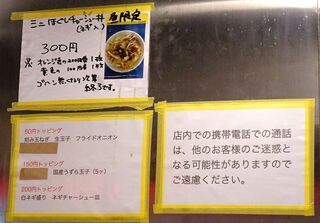 ミニほぐしチャーシュー丼 昼限定
(ネギ入)
300円
※ オレンジ色の200円券 1枚
黄色の 100円券 1枚
ゴハン無くなり次第
終了です。
50円トッピング
刻み玉ねぎ 生玉子 フライドオニオン
150円トッピング
国産うずら玉子(5ヶ)
200円トッピング
白ネギ盛り ネギチャーシュー皿
店内での携帯電話での通話
は、他のお客様のご迷惑と
なる可能性がありますので
ご遠慮ください。